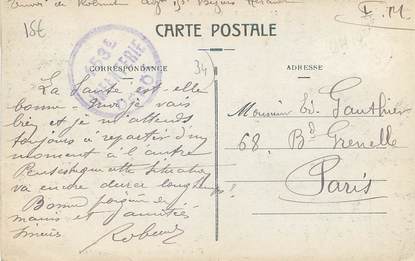 15E
de Robert Béziers Hérault
F. M
CARTE POSTALE
CORRESPONDANCE
ADRESSE
34
La Santé est-elle
bonne - Moi je vais
bien et je m'attends
toujours à repartir d'un
moment à l'autre
Peut-être que cette situation
va encore durer longtemps!
Bonne poignée de
mains et amitiés
Robert
Monsieur Ed. Gauthier
68, Bd Grenelle
Paris